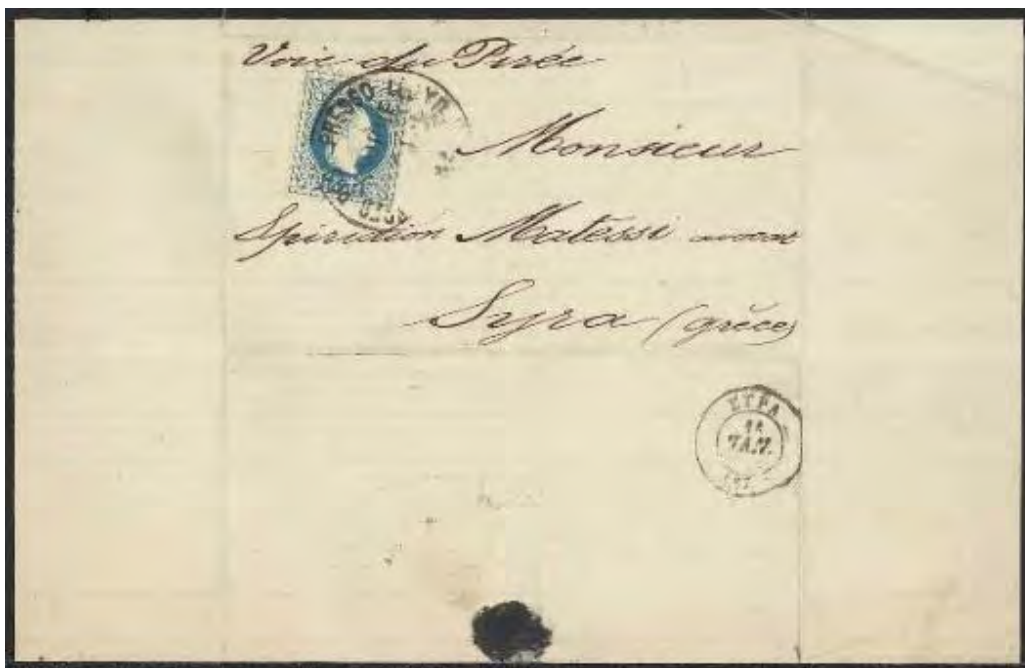 Voie du Pirée
LLOYD
Monsieur
Spiridion Matéssi avocat
Syra (grèce)
ΣΥΡΑ
11
ΙΑΝ.